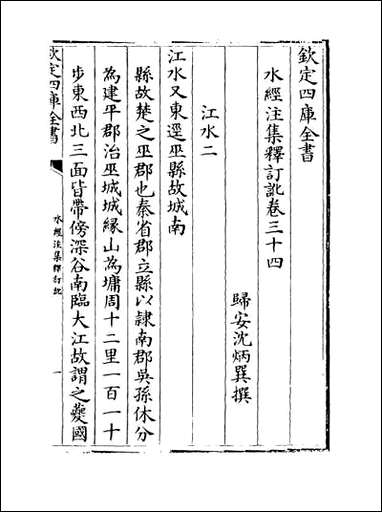 欽定四庫全書
水經注集釋訂訛卷三十四
歸安沈炳巽撰
江水二
江水又東逕巫縣故城南
縣故楚之巫郡也秦省郡立縣以隸南郡吳孫休分
為建平郡治巫城城緣山為墉周十二里一百一十
步東西北三面皆帶傍深谷南臨大江故謂之夔國
欽定四庫全書
水經注集釋訂訛
一